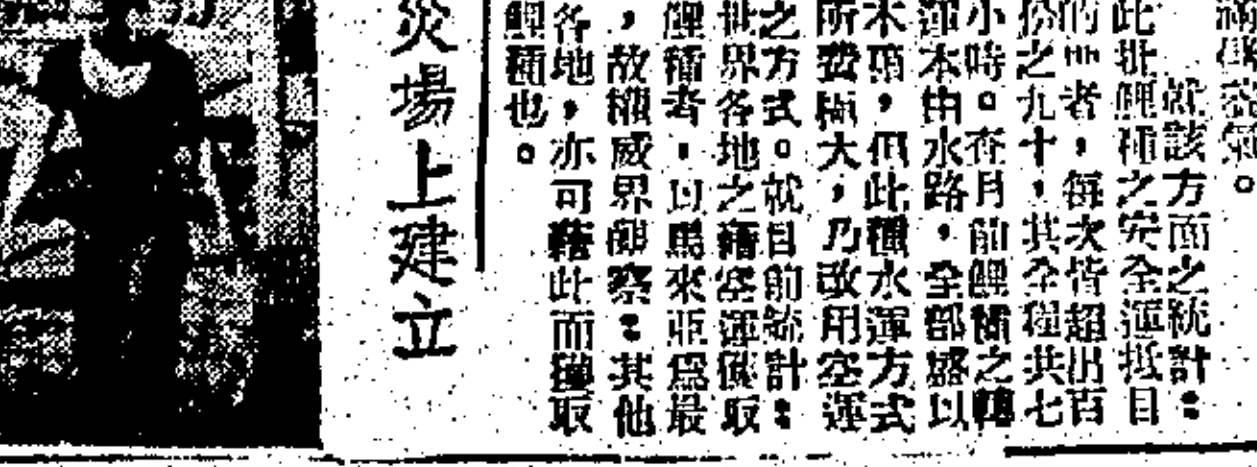 滿與空氣。
就該方面之統計:
此批鯉種之安全運抵目
的地者,每次皆超出百
份之九十,其全程共七
小時。在月前鯉種之轉
運本由水路,全部盛以
木桶,但此種水運方式
所費極大,乃改用空運
之方式。就目前統計:
世界各地之藉空運獲取
鯉種者,以馬來亞為最
,故權威界觀察:其他
各地,亦可藉此而獲取
鯉種也。
災場上建立